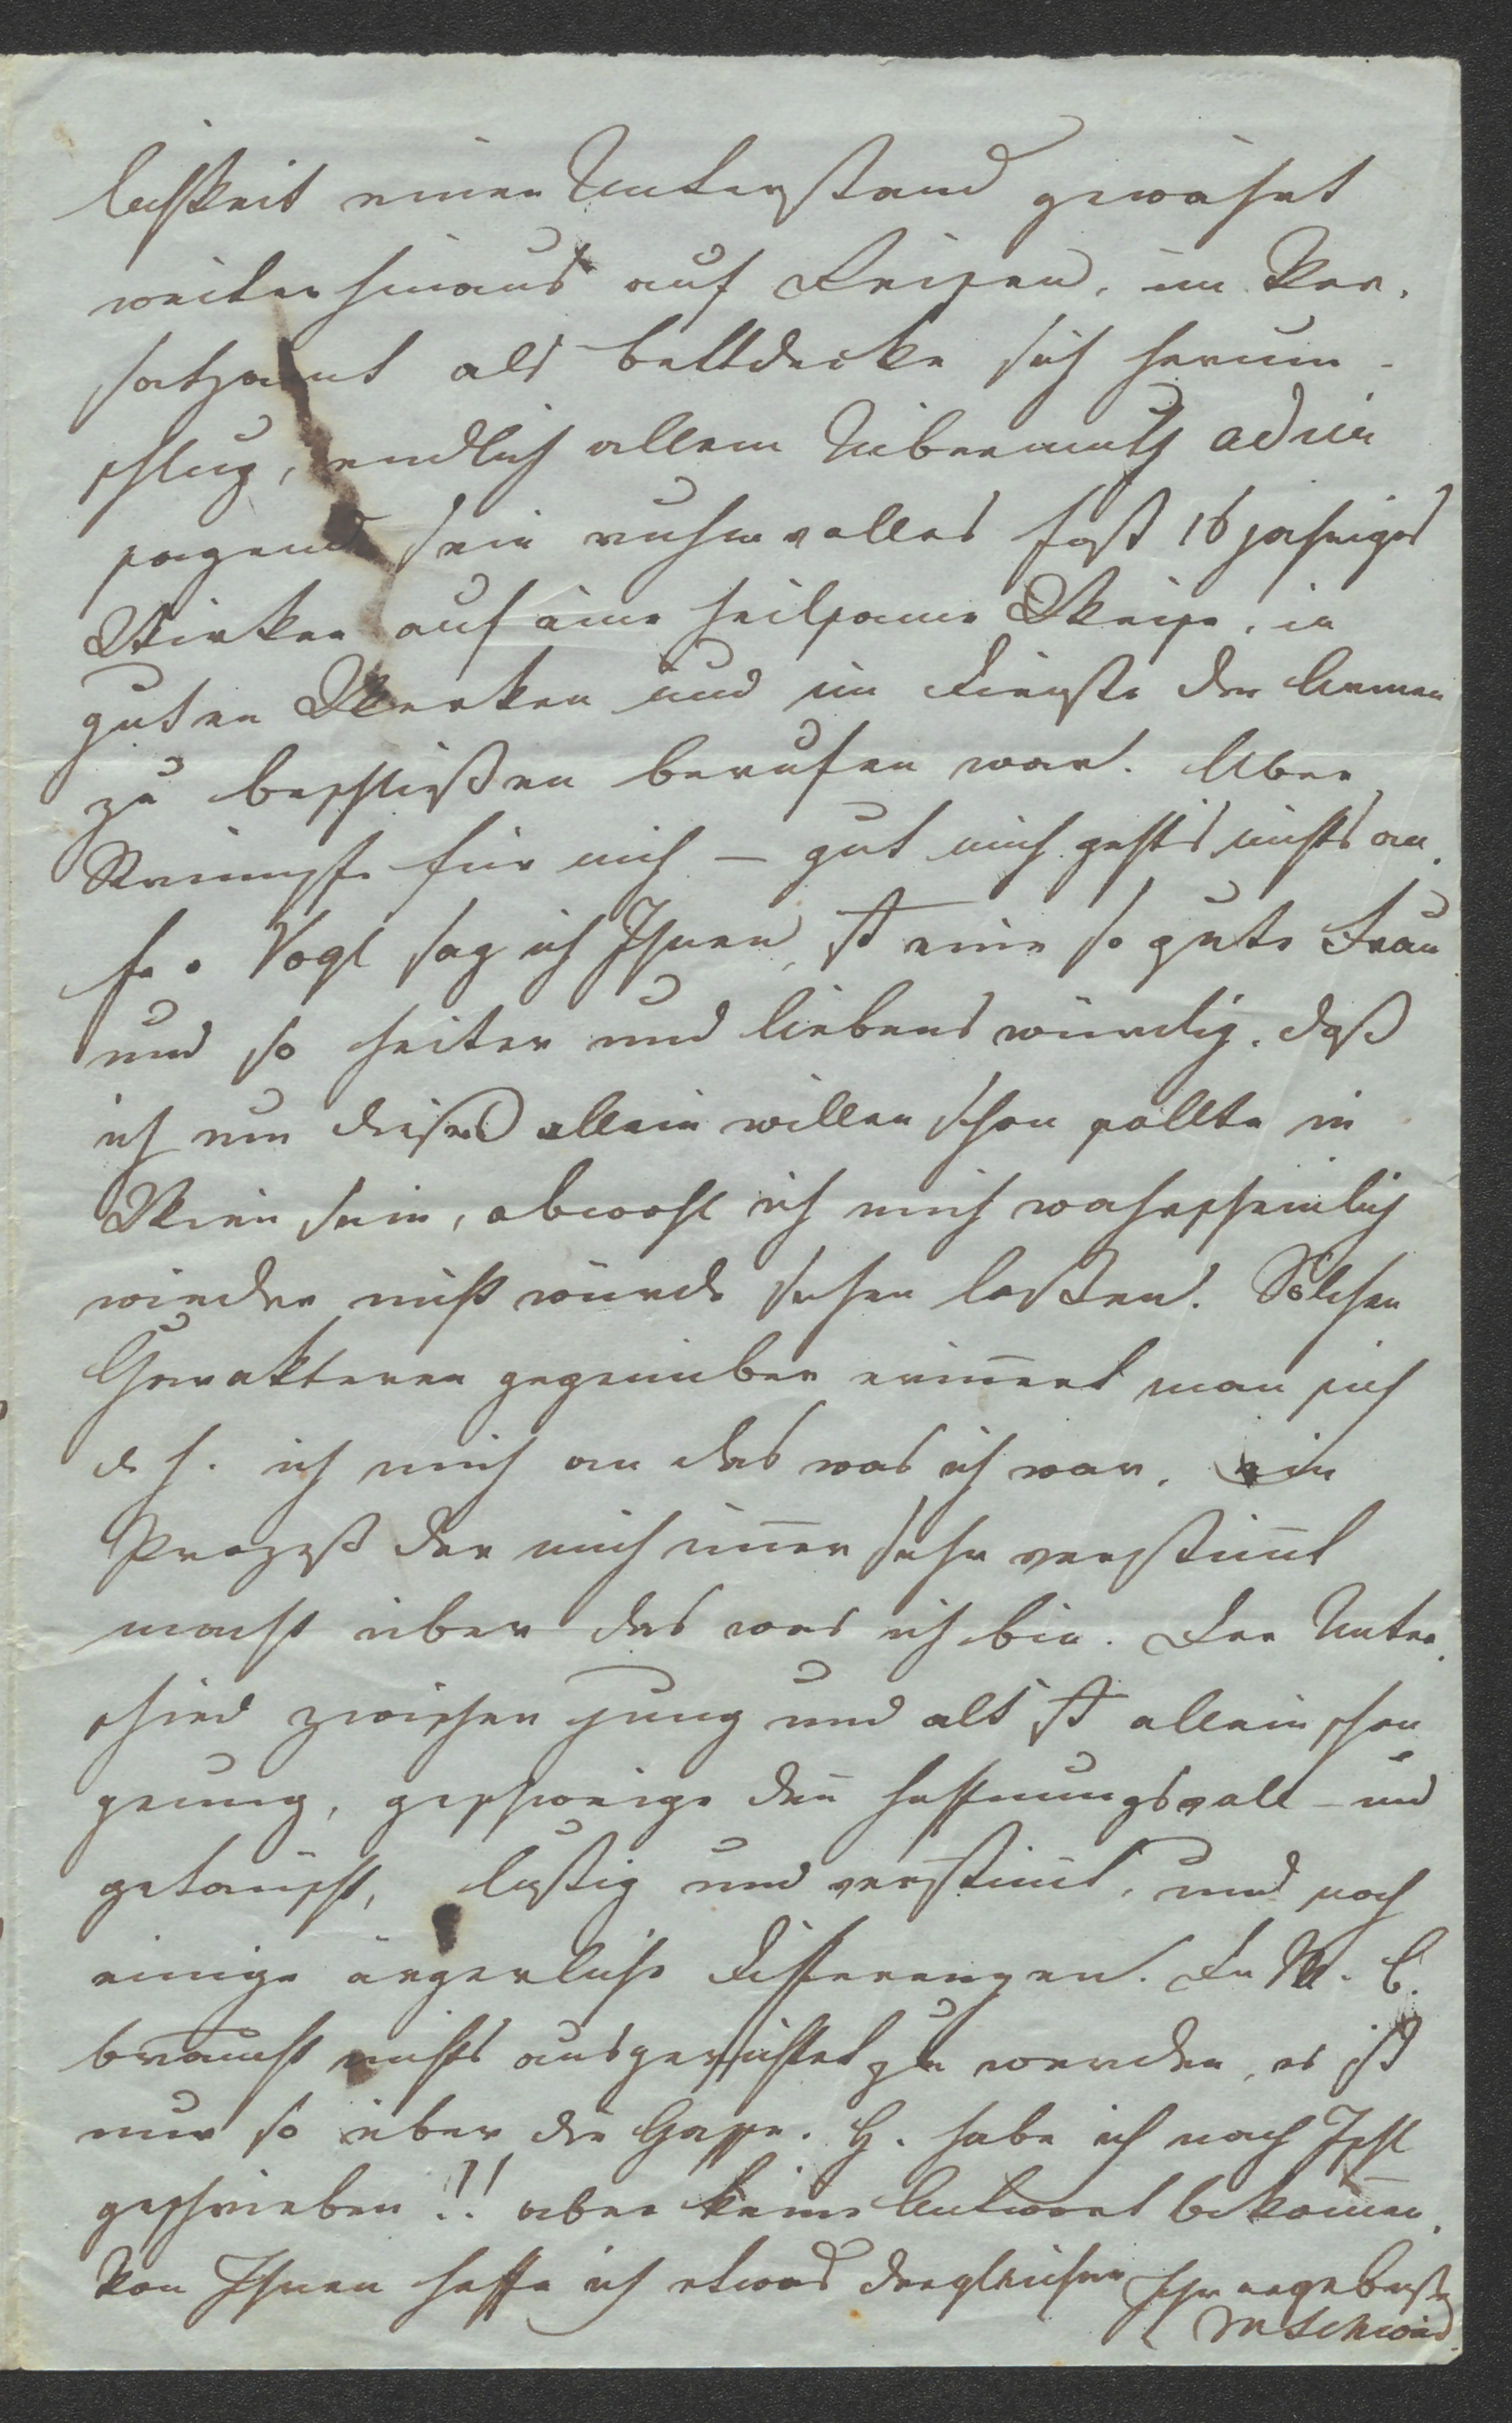 lichkeit einen Unterstand gewährt
weiter hinaus auf Reisen, im Ver¬
satzamt als Bettdecke sich herum-
schlug, endlich allem Übermuth adieu
sagend sein ruhmvolles fast 16 jähriges
Wirken auf eine heilsame Weise, in
guten Werken und im Dienste der Armen
zu beschließen berufen war. Aber
Strümpfe für mich – gut mich gehts nichts an.
Fr. Vogl sag ich Ihnen, ist eine so gute Frau
und so heiter und liebenswürdig, daß
ich um dieser allein willen schon sollte in
Wien sein, obwohl ich mich wahrscheinlich
wieder nicht würde sehen lassen. Solchen
Charakteren gegenüber erin̄ert man sich
d. h. ich mich an das was ich war, ein
Prozeß der mich im̄er sehr verstim̄t
macht über das was ich bin. Der Unter¬
schied zwischen jung und alt ist allein schon
genug, geschweige den̄ hoffnungsvoll – und
getäuscht, lustig und verstim̄t, und noch
einige ärgerliche Differenzen. Fr. M. C.
braucht nichts ausgerichtet zu werden, es ist
nur so über die Gasse. H. habe ich nach Ischl
geschrieben!! aber keine Antwort bekom̄en.
Von Ihnen hoffe ich etwas dergleichen Ihr ergebenster
MSchwind